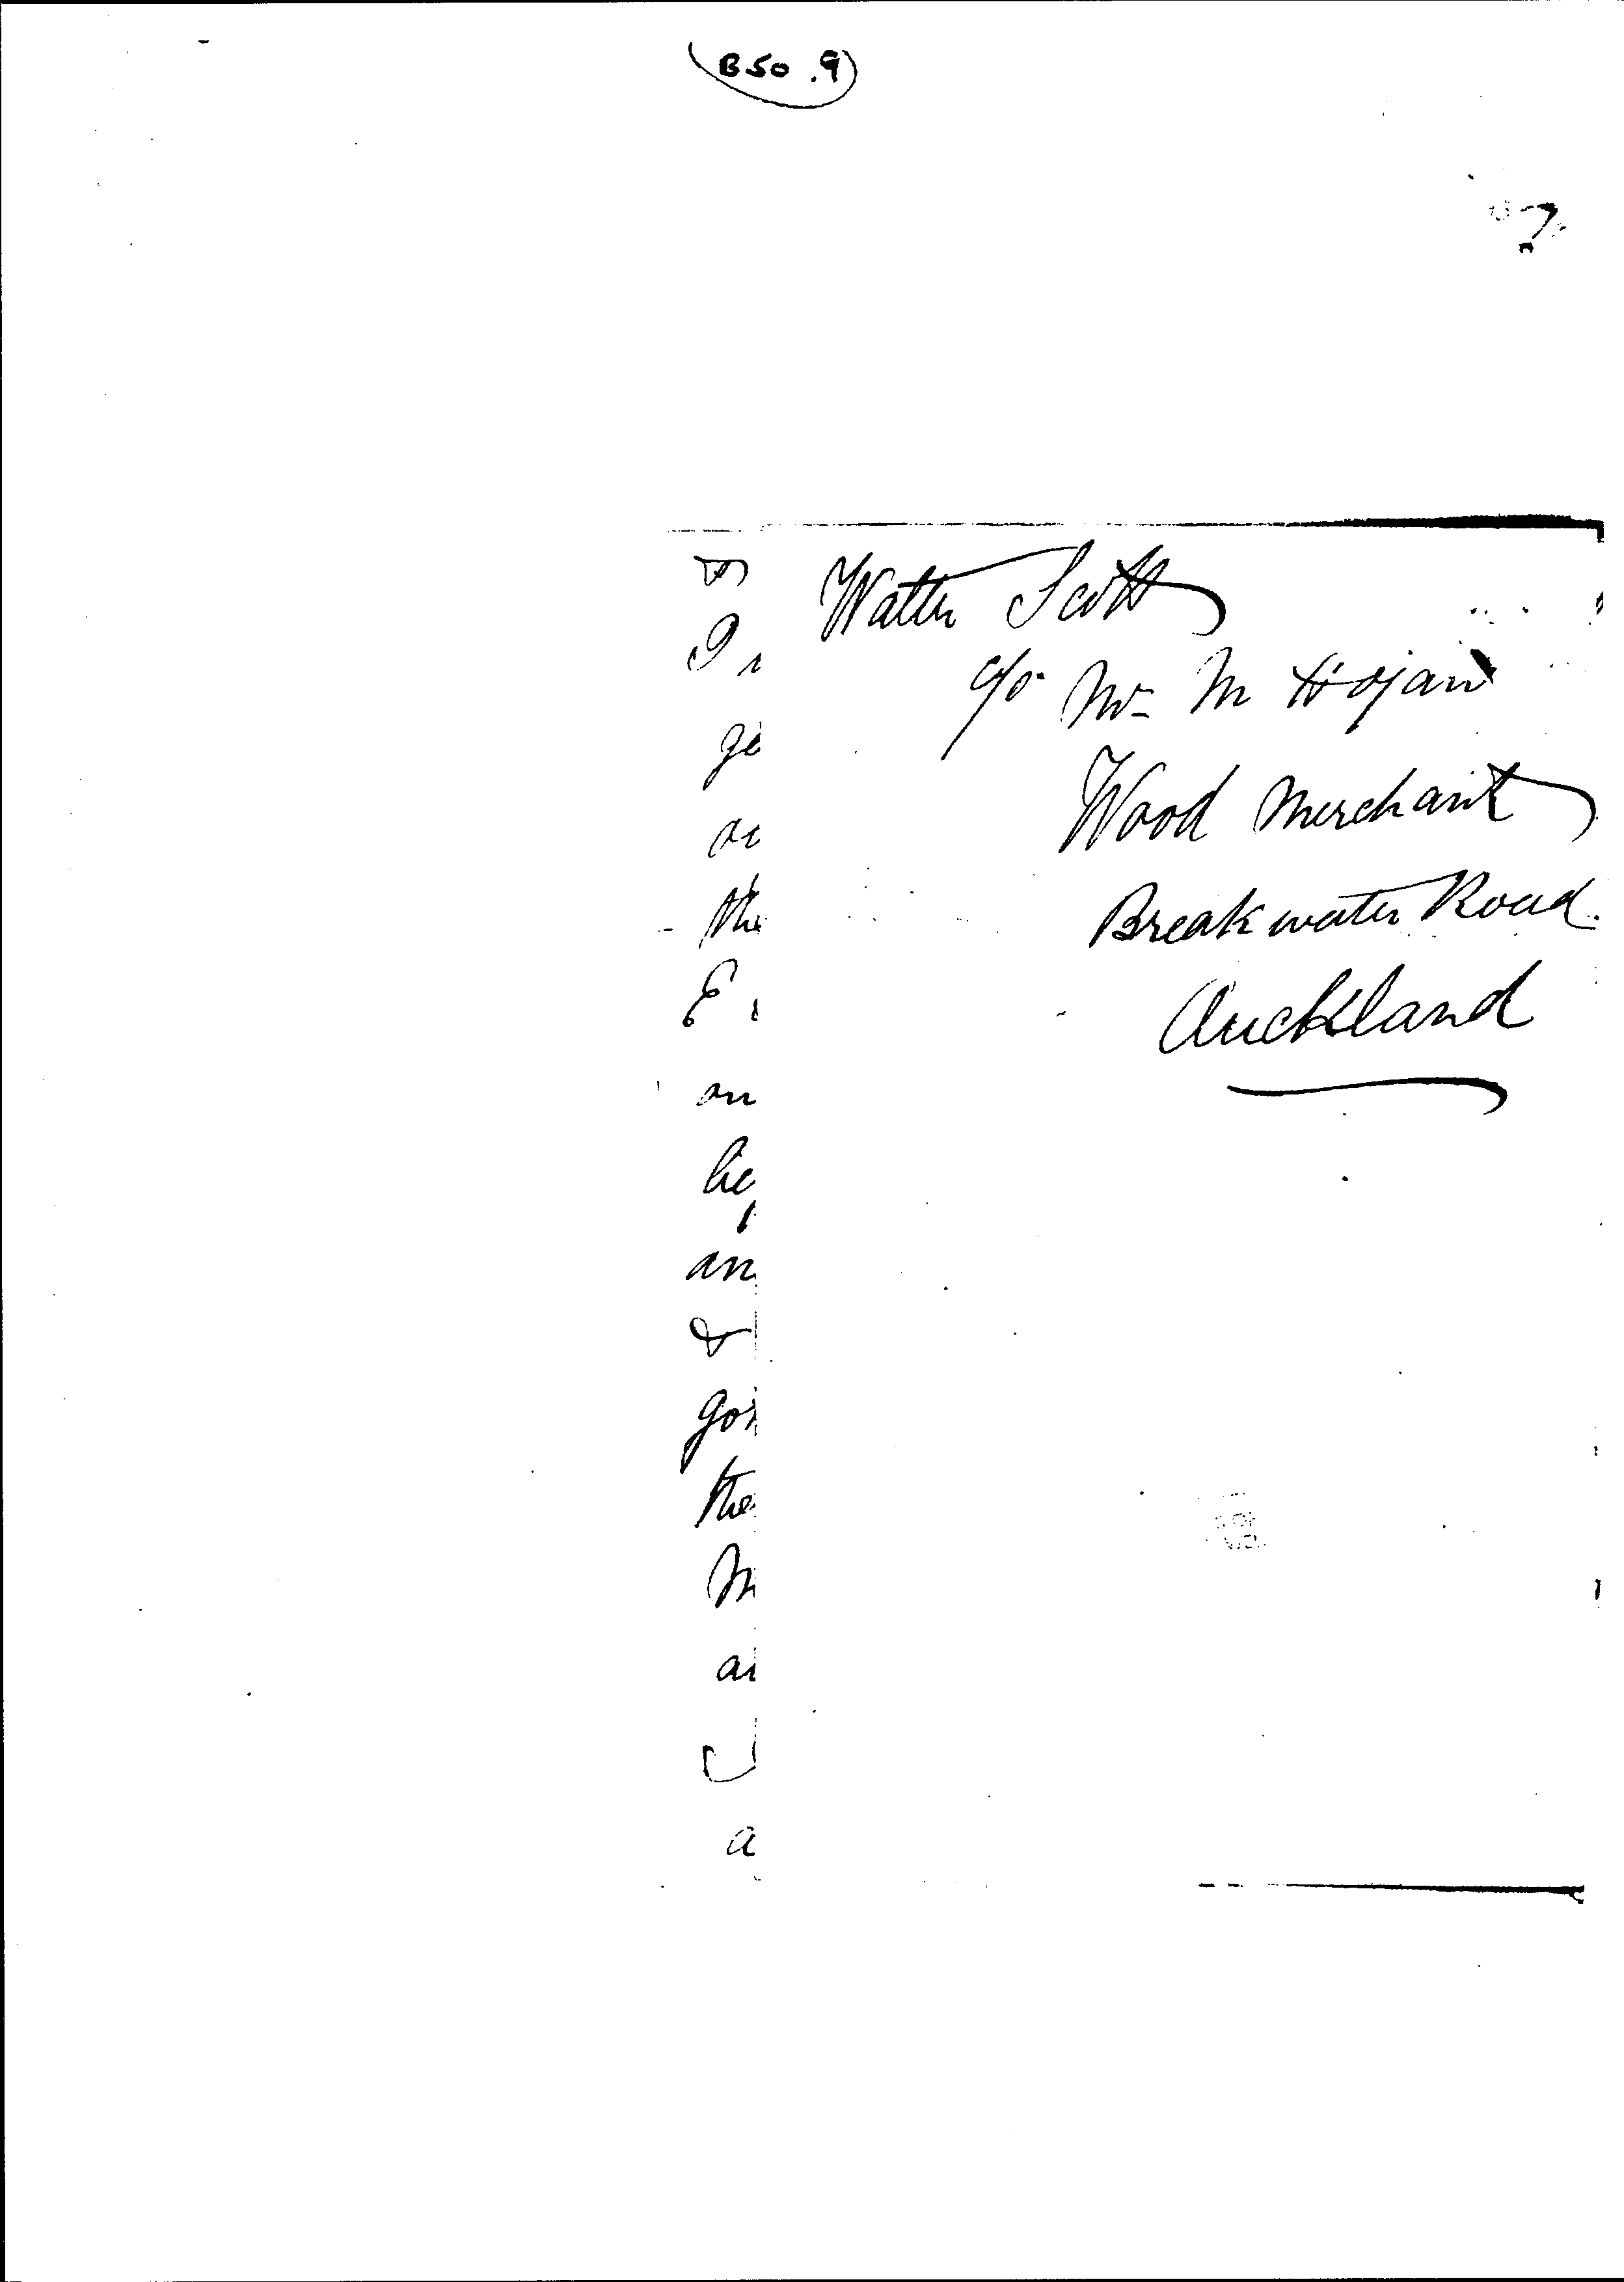 B50.9
?
Walter Scott
c/o Mr M Hojan
Wood Merchant
Breakwater Road.
Auckland
ge
the
E
on
an
&
the
M
a